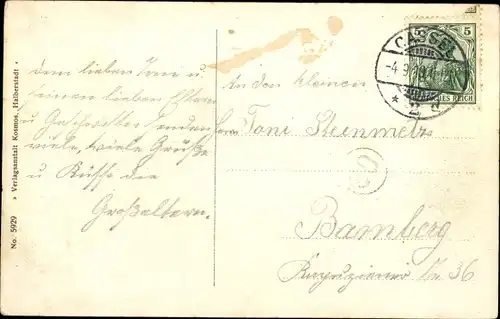 dem lieben Toni u.
seinen lieben Eltern
u Geschwister senden
viele, viele Grüße
u Küsse die
Großeltern.
An den kleinen
Herrn Toni Steinmetz
Bamberg
Kapuziner 36
CASSEL
-4.9
* 2 d
5
DEUTSCHES REICH
No. 5929 * Verlagsanstalt Kosmos, „Halberstadt" *